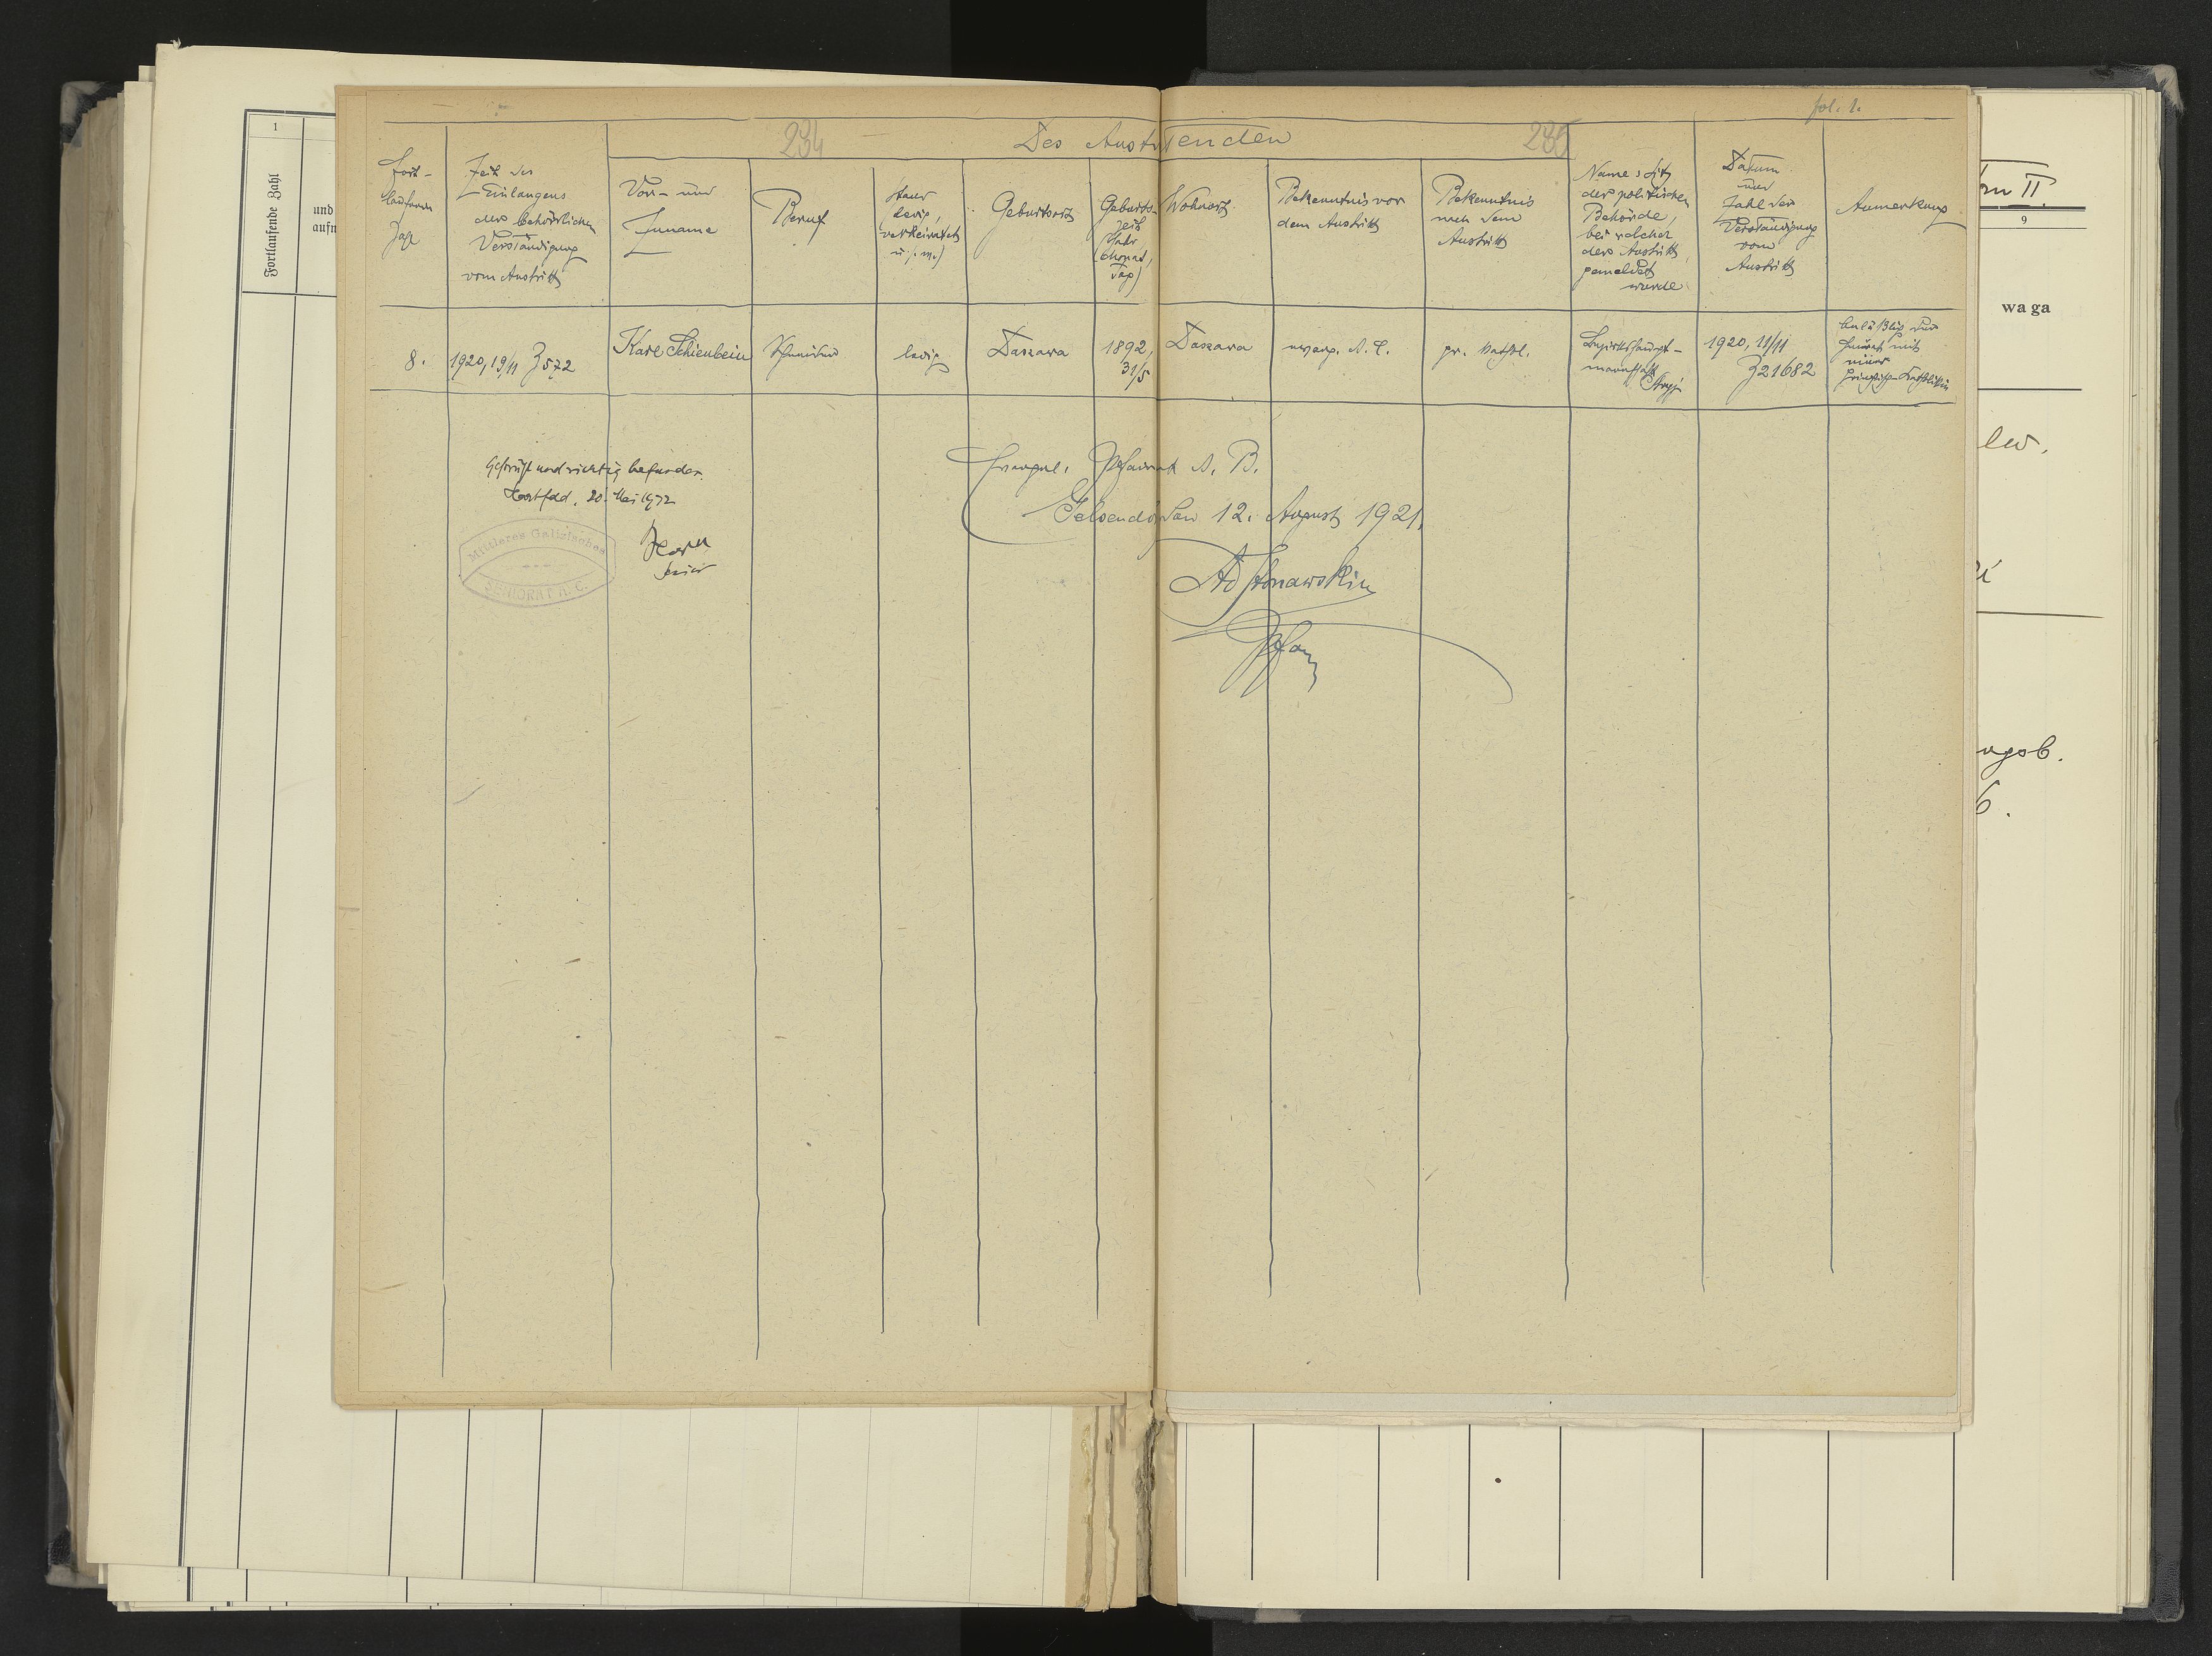 fol. 1.
234
Des Austretenden
235
Fort-
laufende
Zahl
Zeit des
Einlangens
der behördlichen
Verständigung
vom Austritt
Vor- und
Zuname
Beruf
Stand
(ledig,
verheiratet
u.s.w.)
Geburtsort
Geburts-
zeit
(Jahr
Monat,
Tag)
Wohnort
Bekenntnis vor
dem Austritt
Bekenntnis
nach dem
Austritt
Name u. Sitz
der politischen
Behörde,
bei welcher
der Austritt
gemeldet
wurde
Datum
und
Zahl der
Verständigung
vom
Austritt
Anmerkung
8.
1920, 19/11 Z 572
Karl Schienbein
Schneider
ledig
Daszawa
1892,
31/5
Daszawa
evang. A. C.
gr. kathol.
Bezirkshaupt-
mannschaft
Stryj
1920, 11/11
Z 21682
anläßlich der
Heirat mit
einer
griechisch-Katholikin
Geprüft und richtig befunden.
Hartfeld, 20. Mai 1932
Mittleres Galizisches
SENIORAT A. C.
Senior
Evangel. Pfarramt A. B.
Gelsendorf den 12. August 1921.
Pfarrer
Fortlaufende Zahl
1
und
aufn
9
waga